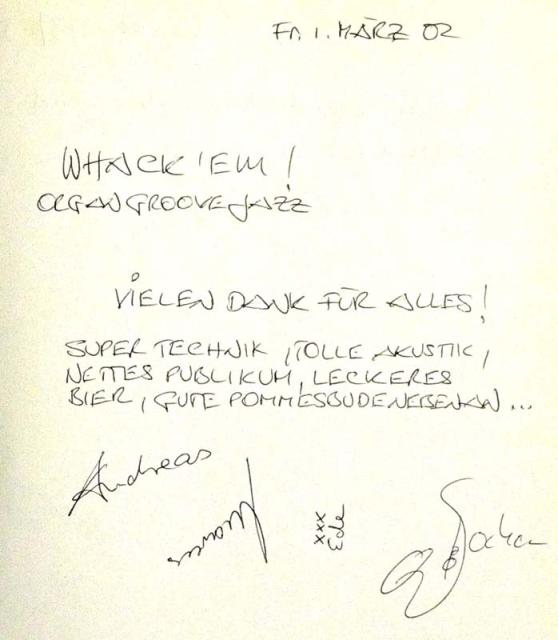 Fr. 1. MÄRZ 02
WHACK 'EM!
ORGANGROOVEJAZZ
VIELEN DANK FÜR ALLES!
SUPER TECHNIK, TOLLE AKUSTIK,
NETTES PUBLIKUM, LECKERES
BIER, GUTE POMMESBUDE NEBENAN...
Andreas
xxx
Ede